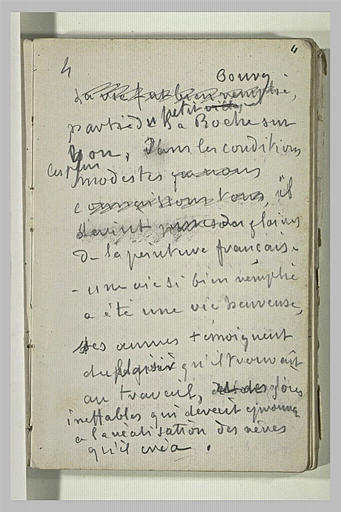 4 "
Bourg
Sa vie fut bien remplie,
parti du petit
la Roche sur
Yon, dans les conditions
les plus
modestes que nous
connaissons tous, il
devint une des gloires
de la peinture française.
- une vie si bien remplie
a été une vie heureuse,
ses œuvres témoignent
du plaisir qu'il trouvait
au travail, et des joies
ineffables qui devait éprouver
à la réalisation des rêves
qu'il créa.